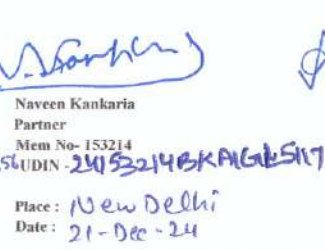 Naveen Kankaria
Partner
Mem No- 153214
UDIN - 24153214BKAIGL5117
Place : New Delhi
Date : 21-Dec-24